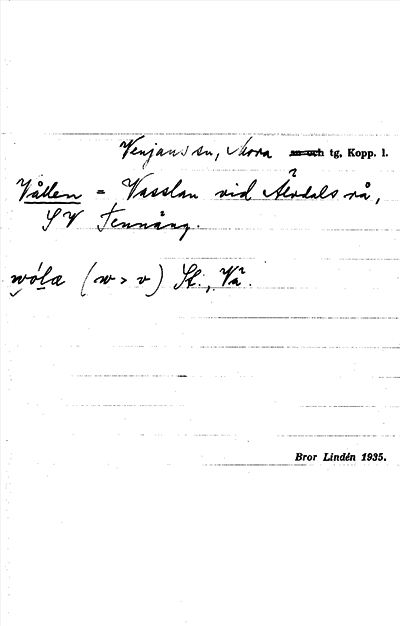 Venjans sn, Mora sn och tg, Kopp. l.
Vållen = Vasslan vid Älvdals rå,
SV Tennäng.
wóla (w > v) St., Vå.
Bror Lindén 1935.